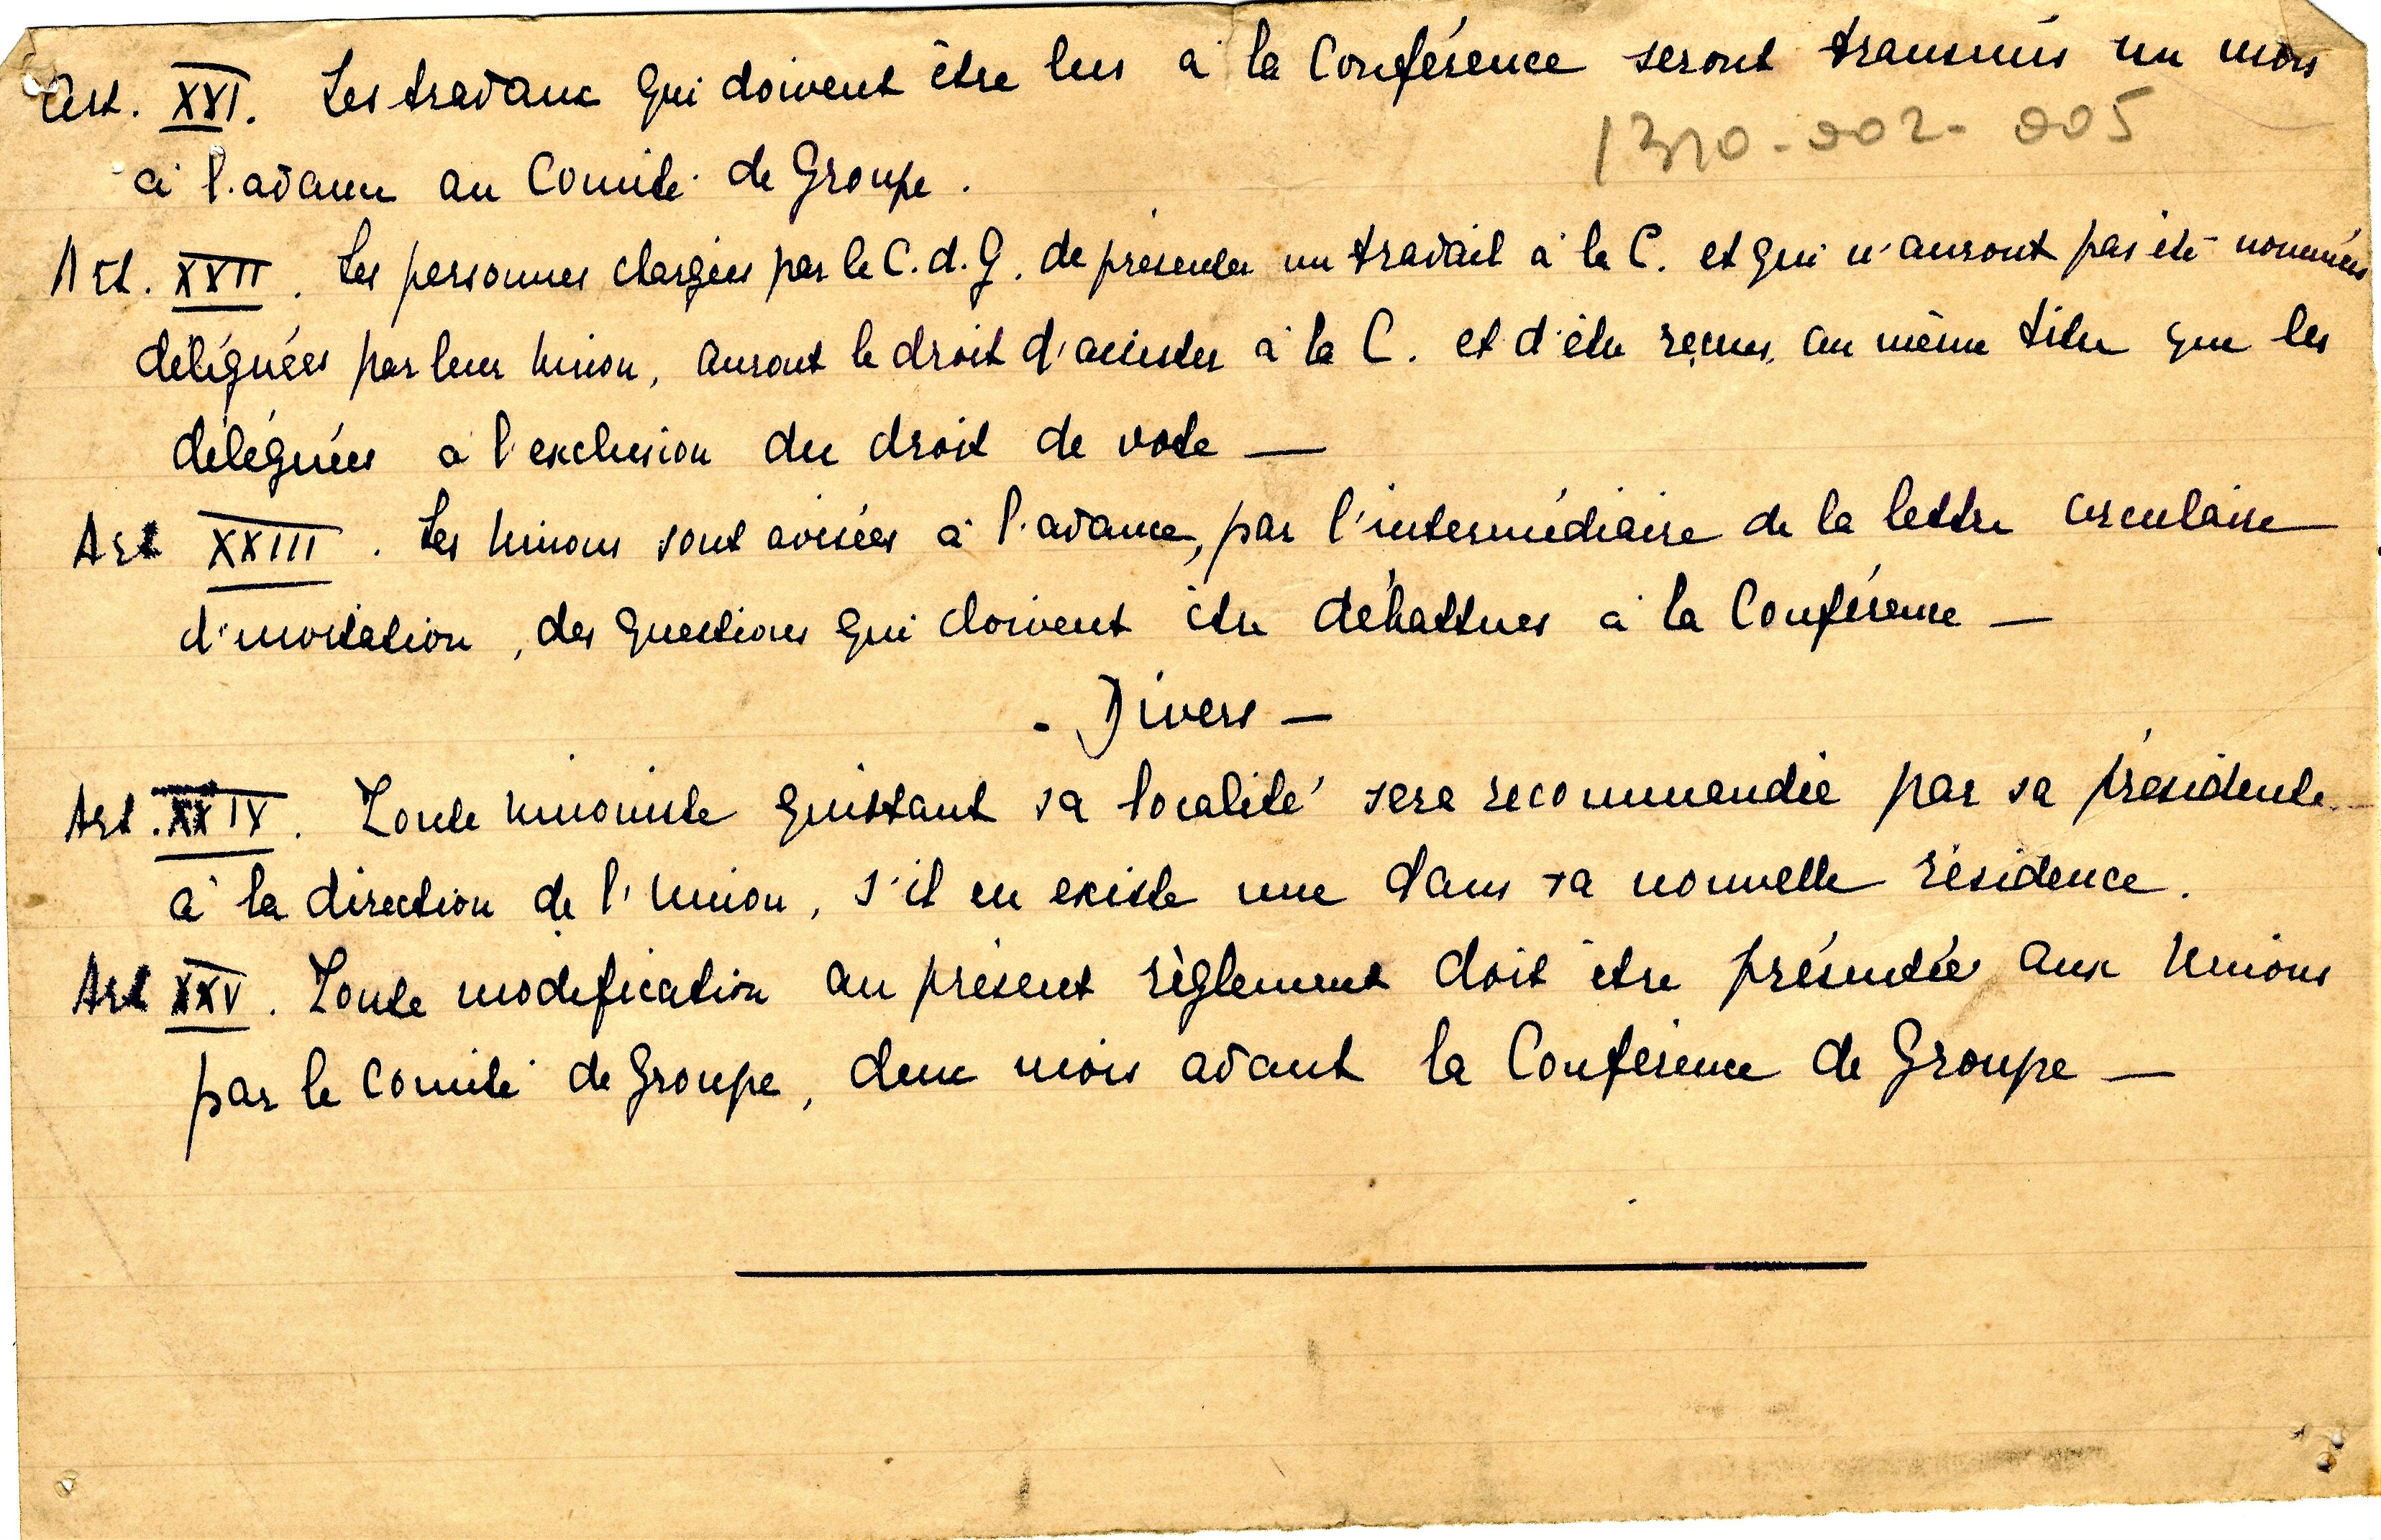 Art. XXI. Les travaux qui doivent être lus à la Conférence seront transmis un mois
1310-002-005
à l'avance au Comité de Groupe.
Art. XXII. Les personnes chargées par le C.d.G. de présenter un travail à la C. et qui n'auront pas été nommées
déléguées par leur Union, auront le droit d'assister à la C. et d'être reçues, au même titre que les
déléguées à l'exclusion du droit de vote —
Art XXIII. Les Unions sont avisées à l'avance, par l'intermédiaire de la lettre circulaire
d'invitation, des questions qui doivent être débattues à la Conférence —
- Divers -
Art. XXIV. Toute unioniste quittant sa localité sera recommandée par sa présidente
à la direction de l'Union, s'il en existe une dans sa nouvelle résidence.
Art XXV. Toute modification au présent règlement doit être présentée aux Unions
par le Comité de Groupe, deux mois avant la Conférence de Groupe —